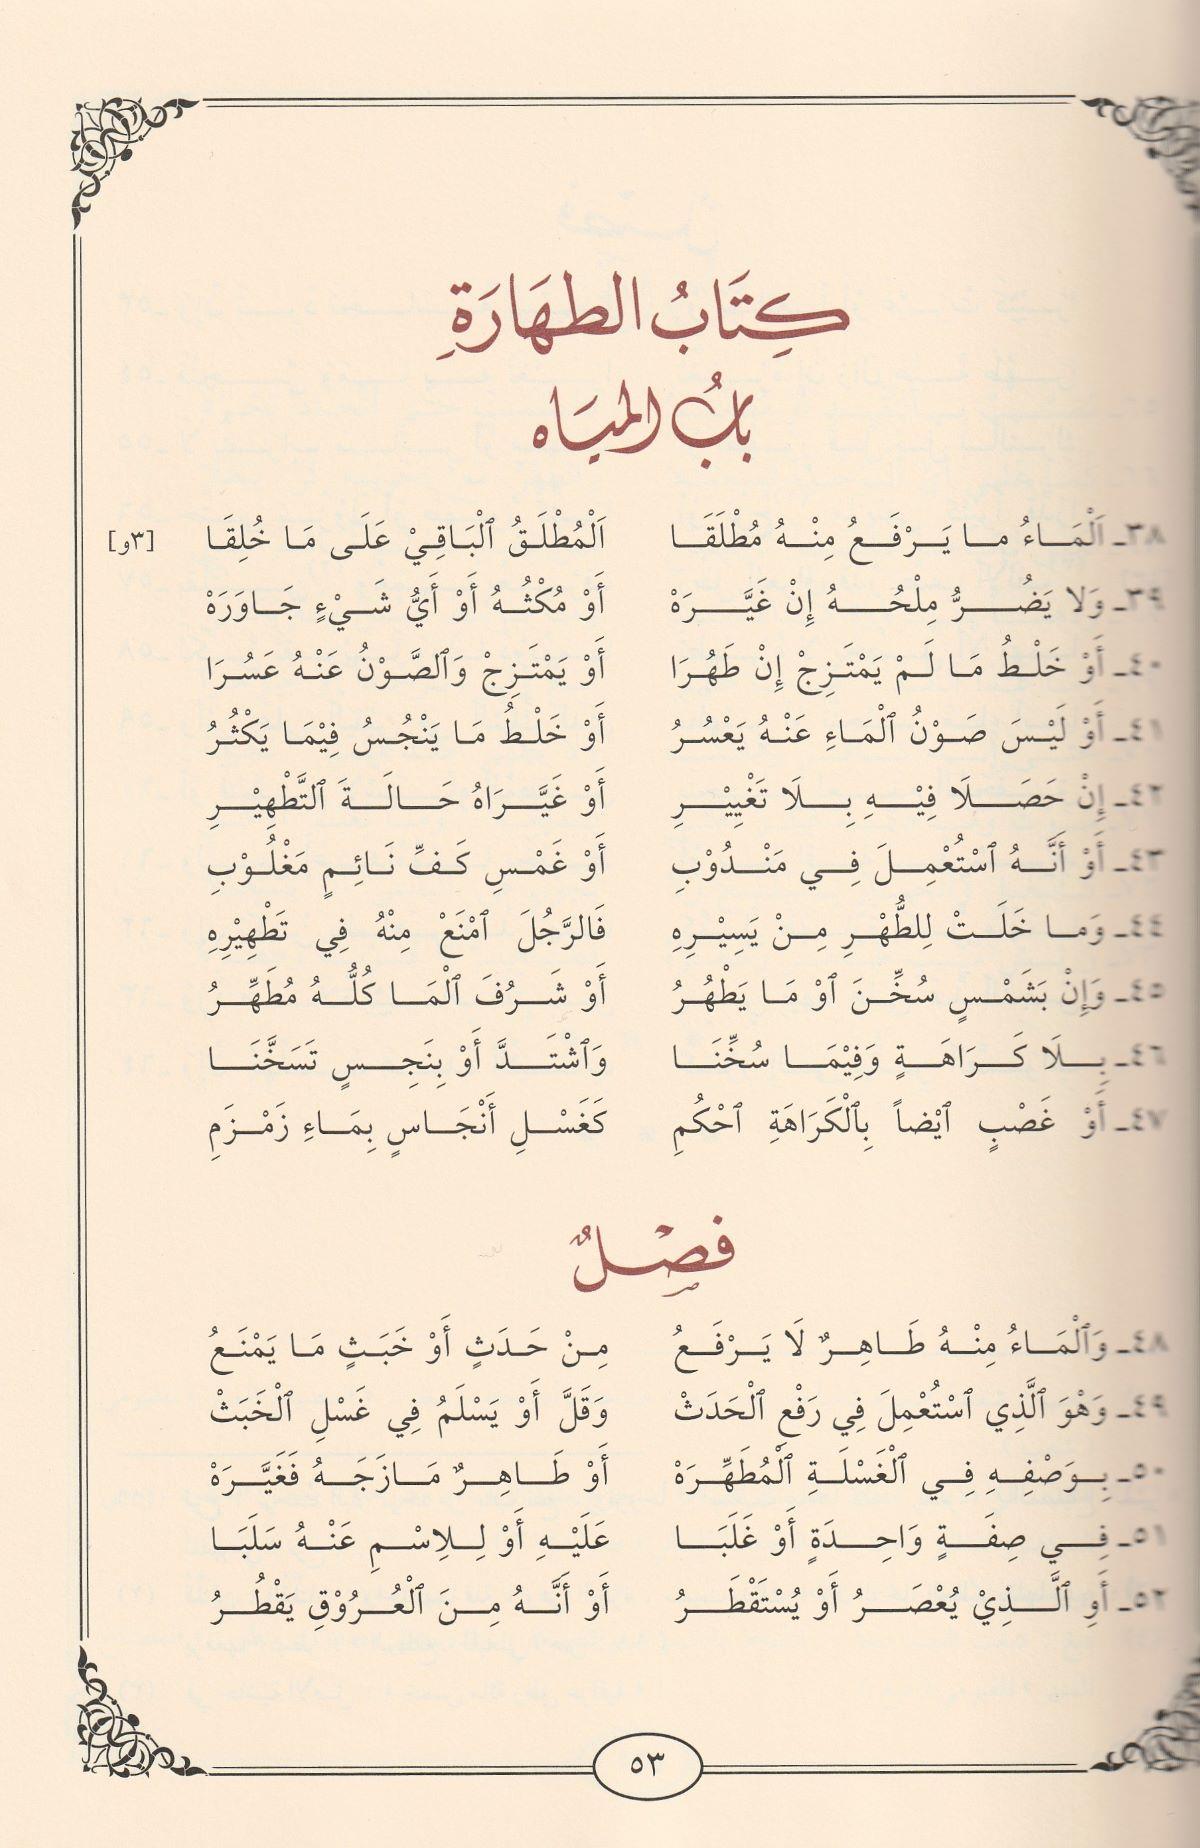 كِتَابُ الطهَارَةِ
بابُ المِيَاه
٣٨ـ اَلْمَاءُ ما يَرْفَعُ مِنْهُ مُطْلَقَا اَلْمُطْلَقُ ٱلْبَاقِيْ عَلَى مَا خُلِقَا [٣و]
٣٩ـ وَلا يَضُرُّ مِلْحُهُ إِنْ غَيَّرَهْ أَوْ مُكْثُهُ أَوْ أَيُّ شَيْءٍ جَاوَرَهْ
٤٠ـ أَوْ خَلْطُ مَا لَمْ يَمْتَزِجْ إِنْ طَهُرَا أَوْ يَمْتَزِجْ وَٱلصَّوْنُ عَنْهُ عَسُرَا
٤١ـ أَوْ لَيْسَ صَوْنُ ٱلْمَاءِ عَنْهُ يَعْسُرُ أَوْ خَلْطُ مَا يَنْجُسُ فِيْمَا يَكْثُرُ
٤٢ـ إِنْ حَصَلَا فِيْهِ بِلَا تَغْيِيْرِ أَوْ غَيَّرَاهُ حَالَةَ ٱلتَّطْهِيْرِ
٤٣ـ أَوْ أَنَّهُ ٱسْتُعْمِلَ فِي مَنْدُوْبِ أَوْ غَمْسِ كَفِّ نَائِمٍ مَغْلُوْبِ
٤٤ـ وَما خَلَتْ لِلطُّهْرِ مِنْ يَسِيْرِهِ فَالرَّجُلَ ٱمْنَعْ مِنْهُ فِي تَطْهِيْرِهِ
٤٥ـ وَإِنْ بَشَمْسٍ سُخِّنَ ٱوْ مَا يَطْهُرُ أَوْ شَرُفَ ٱلْمَا كُلُّهُ مُطَهِّرُ
٤٦ـ بِلَا كَرَاهَةٍ وَفِيْمَا سُخِّنَا وَٱشْتَدَّ أَوْ بِنَجِسٍ تَسَخَّنَا
٤٧ـ أَوْ غَصْبٍ ٱيْضاً بِٱلْكَرَاهَةِ ٱحْكُمِ كَغَسْلِ أَنْجَاسٍ بِمَاءِ زَمْزَمِ
فصْلٌ
٤٨ـ وَٱلْمَاءُ مِنْهُ طَاهِرٌ لَا يَرْفَعُ مِنْ حَدَثٍ أَوْ خَبَثٍ مَا يَمْنَعُ
٤٩ـ وَهْوَ ٱلَّذِي ٱسْتُعْمِلَ فِي رَفْعِ ٱلْحَدَثْ وَقَلَّ أَوْ يَسْلَمُ فِي غَسْلِ ٱلْخَبَثْ
٥٠ـ بِوَصْفِهِ فِي ٱلْغَسْلَةِ ٱلْمُطَهِّرَهْ أَوْ طَاهِرٌ مَازَجَهُ فَغَيَّرَهْ
٥١ـ فِي صِفَةٍ وَاحِدَةٍ أَوْ غَلَبَا عَلَيْهِ أَوْ لِلِاسْمِ عَنْهُ سَلَبَا
٥٢ـ أَوِ ٱلَّذِيْ يُعْصَرُ أَوْ يُسْتَقْطَرُ أَوْ أَنَّهُ مِنَ ٱلْعُرُوْقِ يَقْطُرُ
٥٣